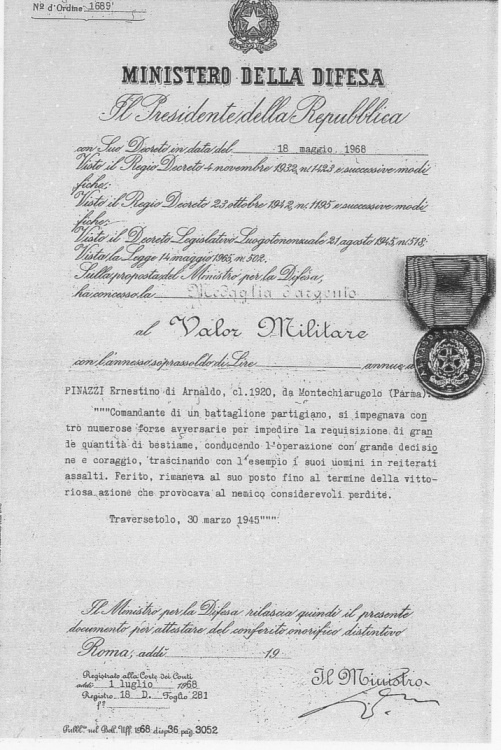 Nº d'Ordine 1689
MINISTERO DELLA DIFESA
Il Presidente della Repubblica
con Suo Decreto in data del 18 maggio 1968
Visto il Regio Decreto 4 novembre 1932, n. 1423 e successive modi
fiche;
Visto il Regio Decreto 23 ottobre 1942, n. 1195 e successive modi
fiche;
Visto il Decreto Legislativo Luogotenenziale 21 agosto 1945, n. 518.
Vista la Legge 14 maggio 1965, n. 502.
Sulla proposta del Ministro per la Difesa,
ha concesso la Medaglia d'argento
al Valor Militare
con l'annesso soprassoldo di Lire annue a
PINAZZI Ernestino di Arnaldo, cl.1920, da Montechiarugolo (Parma).
"""Comandante di un battaglione partigiano, si impegnava con
tro numerose forze avversarie per impedire la requisizione di gran
de quantità di bestiame, conducendo l'operazione con grande decisio
ne e coraggio, trascinando con l'esempio i suoi uomini in reiterati
assalti. Ferito, rimaneva al suo posto fino al termine della vitto-
riosa azione che provocava al nemico considerevoli perdite.
Traversetolo, 30 marzo 1945"""
Il Ministro per la Difesa rilascia quindi il presente
documento per attestare del conferito onorifico distintivo
Roma, addì 19
Registrato alla Corte dei Conti
addì 1 luglio 1968
Registro 18 D. Foglio 281
Il Ministro
Pubbl. nel Boll. Uff. 1968 disp. 36 pag. 3052